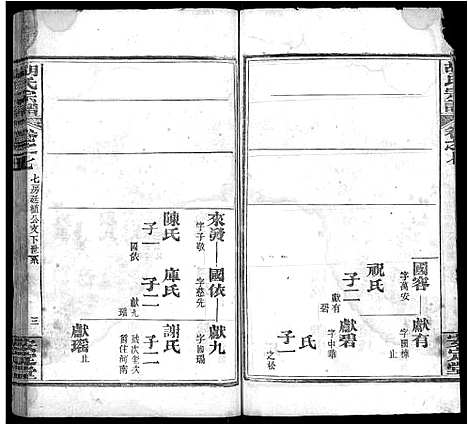 胡氏宗譜
卷之七
國容
字萬安
獻有
字國樟
止
祝氏
子二
獻有
獻碧
獻碧
字中華
氏
子一
之松
來發
字子敬
國依
字慈先
獻九
字國瑞
陳氏
子一
國依
庫氏
子二
獻九
瑤
謝氏
子二
獻瑤
止
胡氏宗譜
卷之七
七房廷植公支下世系
三
安定堂